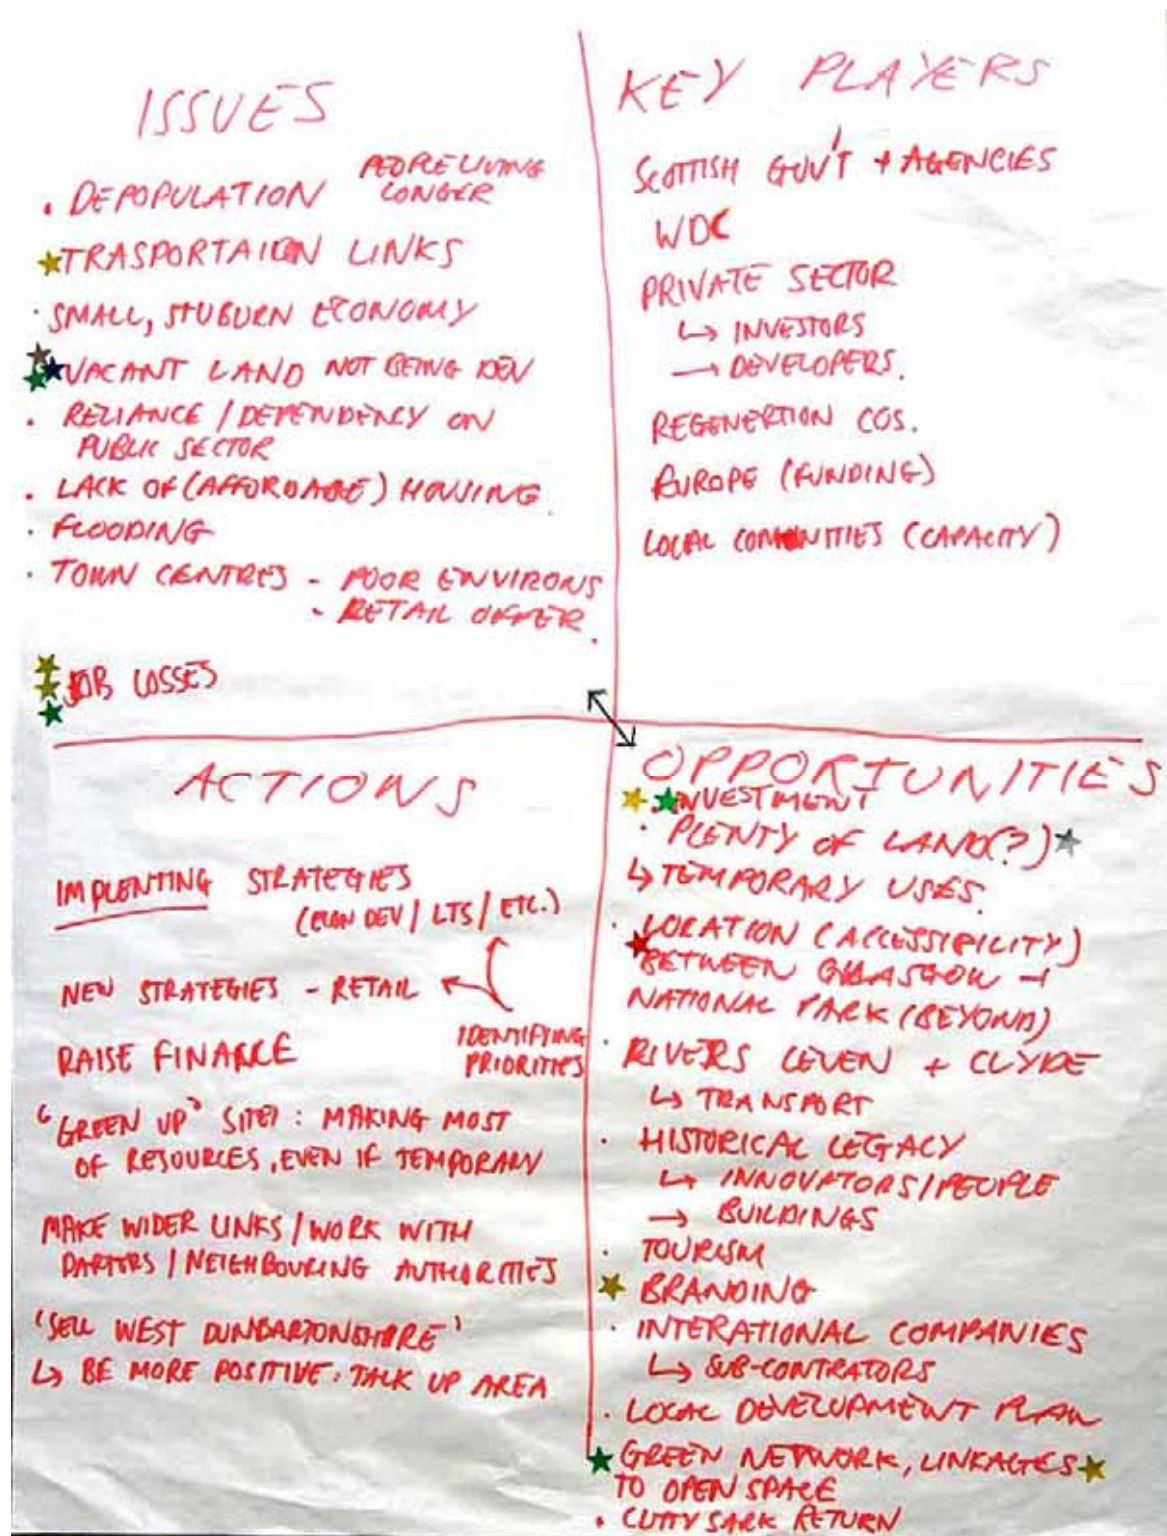 ISSUES
• DEPOPULATION PEOPLE LIVING
LONGER
TRASPORTAION LINKS
• SMALL, STUBURN ECONOMY
VACANT LAND NOT BEING DEV
• RELIANCE / DEPENDENCY ON
PUBLIC SECTOR
• LACK OF (AFFORDABLE) HOUSING
• FLOODING
• TOWN CENTRES - POOR ENVIRONS
- RETAIL OFFER.
JOB LOSSES
KEY PLAYERS
SCOTTISH GOV'T + AGENCIES
WDC
PRIVATE SECTOR
↳ INVESTORS
→ DEVELOPERS.
REGENERTION COS.
EUROPE (FUNDING)
LOCAL COMMUNITIES (CAPACITY)
ACTIONS
IMPLENTING STRATEGIES
(ECON DEV / LTS / ETC.)
NEW STRATEGIES - RETAIL
IDENTIFYING
PRIORITIES
RAISE FINANCE
"GREEN UP" SITES : MAKING MOST
OF RESOURCES, EVEN IF TEMPORARY
MAKE WIDER LINKS / WORK WITH
PARTERS / NEIGHBOURING AUTHORITIES
'SELL WEST DUNBARTONSHIRE'
↳ BE MORE POSITIVE. TALK UP AREA
OPPORTUNITIES
INVESTMENT
• PLENTY OF LAND(?)
↳ TEMPORARY USES.
• LOCATION (ACCESSIBILITY)
BETWEEN GLASGOW +
NATIONAL PARK (BEYOND)
• RIVERS LEVEN + CLYDE
↳ TRANSPORT
• HISTORICAL LEGACY
↳ INNOVATORS/PEOPLE
→ BUILDINGS
• TOURISM
BRANDING
• INTERATIONAL COMPANIES
↳ SUB-CONTRATORS
• LOCAL DEVELOPMENT PLAN
GREEN NETWORK, LINKAGES
TO OPEN SPACE
• CUTTY SARK RETURN